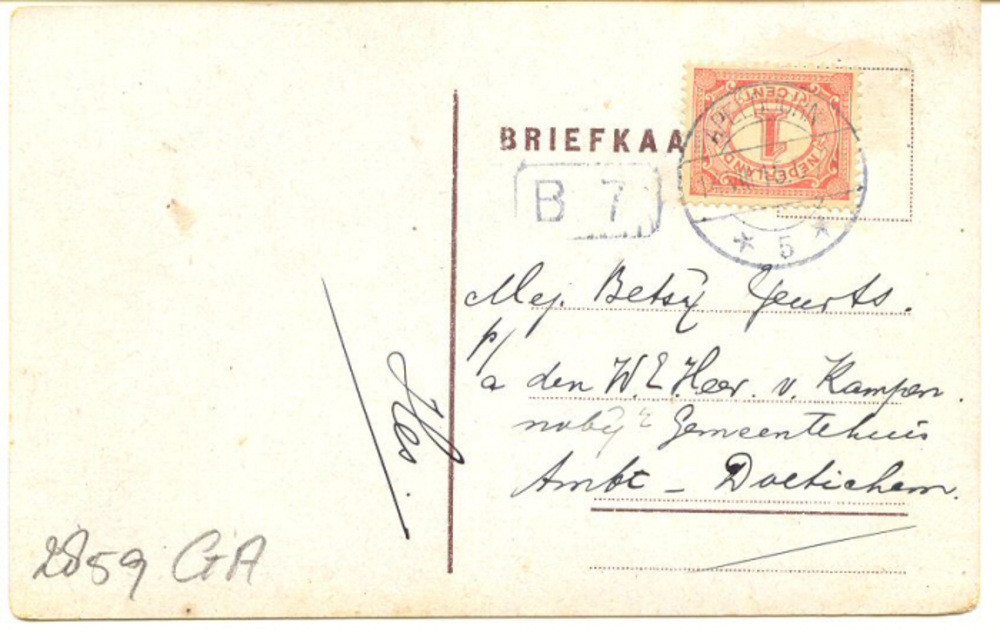 BRIEFKAA
1 CENT
1
NEDERLAND
APELDOORN
* 5 *
B 7
Mej. Betsy Geurts.
p/a den W.E. Heer. v. Kampen.
nabij 't Gemeentehuis
Ambt - Doetichem.
2859 GA